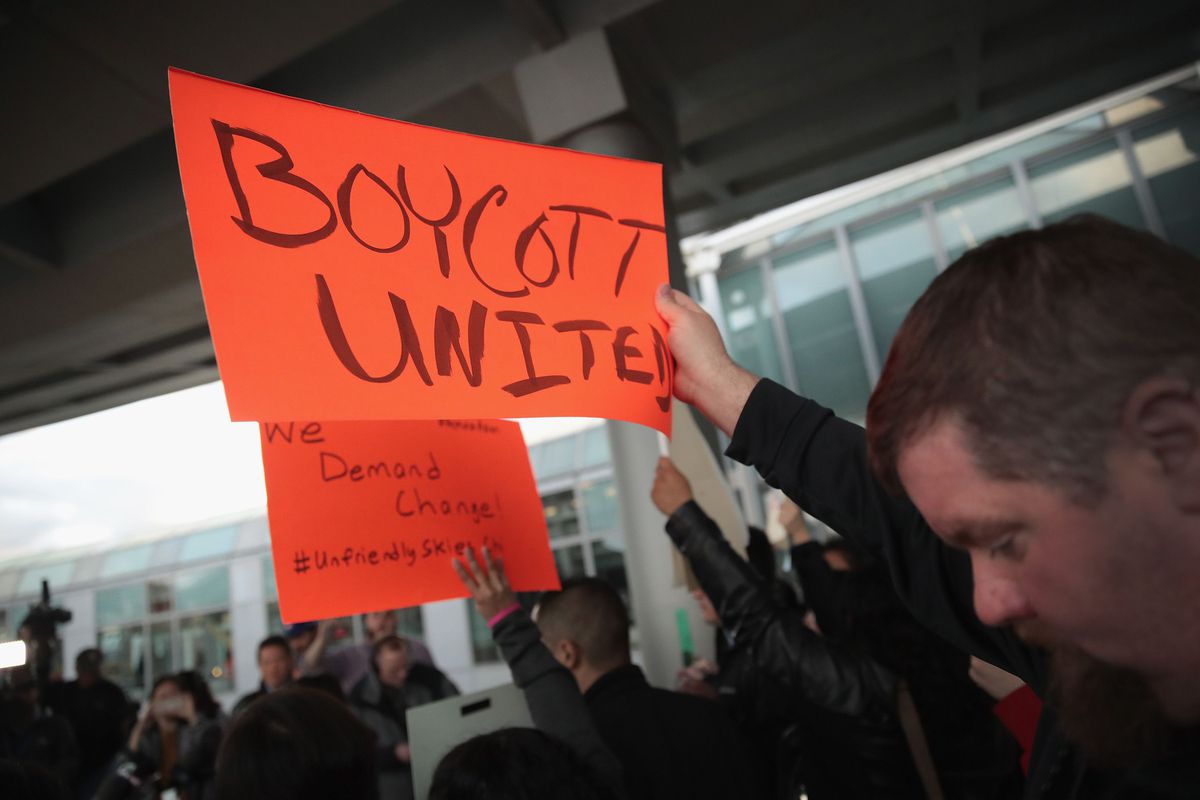 BOYCOTT
UNITED
We
Demand
Change!
#UnfriendlySkies